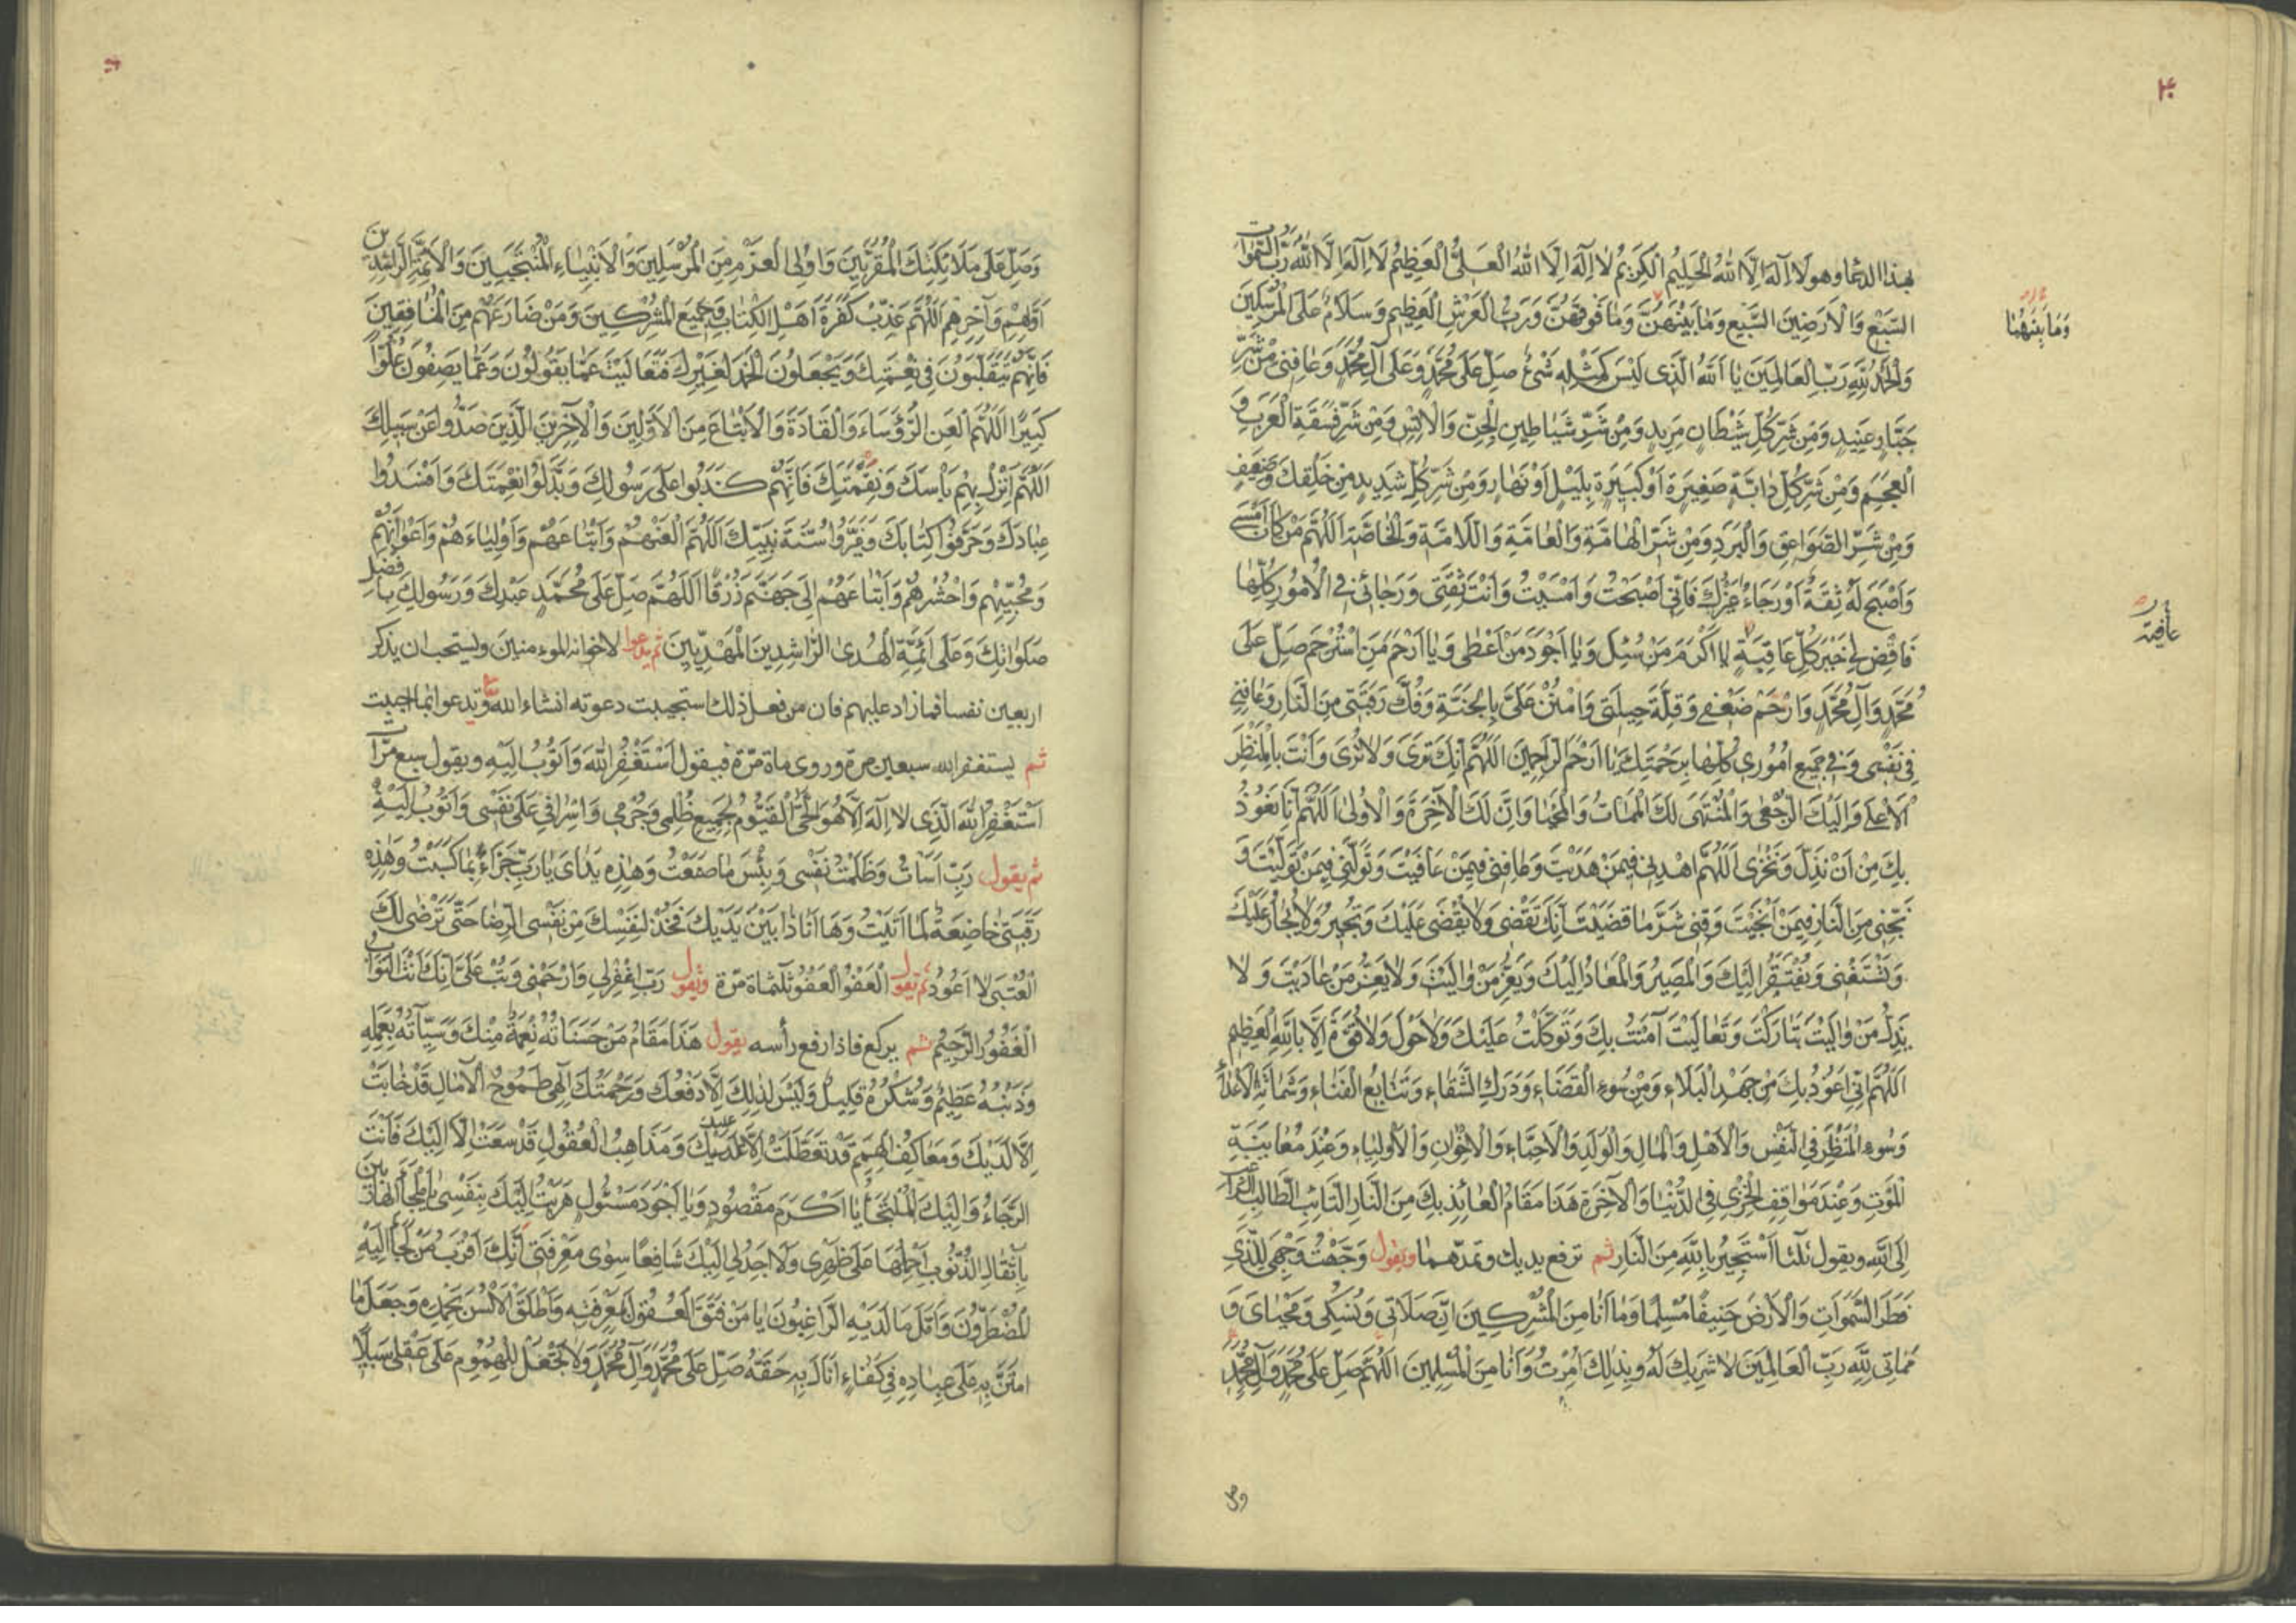 بهذا الدعا وهو لَا اِلٰهَ اِلَّا اللهُ الْحَلِيمُ الْكَرِيمُ لَا اِلٰهَ اِلَّا اللهُ الْعَلِيُّ الْعَظِيمُ لَا اِلٰهَ اِلَّا اللهُ رَبُّ السَّمٰوَاتِ
السَّبْعِ وَالْاَرَضِينَ السَّبْعِ وَمَا بَيْنَهُنَّ وَمَا فَوْقَهُنَّ وَرَبُّ الْعَرْشِ الْعَظِيمِ وَسَلَامٌ عَلَى الْمُرْسَلِينَ
وَمَا بَيْنَهُمَا
وَالْحَمْدُ لِلّٰهِ رَبِّ الْعَالَمِينَ يَا اَللهُ الَّذِى لَيْسَ كَمِثْلِهِ شَىْءٌ صَلِّ عَلَى مُحَمَّدٍ وَعَلَى آلِ مُحَمَّدٍ وَعَافِنِى مِنْ شَرِّ
جَبَّارٍ عَنِيدٍ وَمِنْ شَرِّ كُلِّ شَيْطَانٍ مَرِيدٍ وَمِنْ شَرِّ شَيَاطِينِ الْجِنِّ وَالْاِنْسِ وَمِنْ شَرِّ فَسَقَةِ الْعَرَبِ وَ
الْعَجَمِ وَمِنْ شَرِّ كُلِّ دَابَّةٍ صَغِيرَةٍ اَوْ كَبِيرَةٍ بِلَيْلٍ اَوْ نَهَارٍ وَمِنْ شَرِّ كُلِّ شَدِيدٍ مِنْ خَلْقِكَ وَضَعِيفٍ
وَمِنْ شَرِّ الصَّوَاعِقِ وَالْبَرَدِ وَمِنْ شَرِّ الْهَامَّةِ وَالْعَامَّةِ وَاللَّامَّةِ وَالْخَاصَّةِ اَللّٰهُمَّ مَنْ كَانَ اَمْسَى
وَاَصْبَحَ لَهُ ثِقَةٌ اَوْ رَجَاءٌ غَيْرُكَ فَاِنِّى اَصْبَحْتُ وَاَمْسَيْتُ وَاَنْتَ ثِقَتِى وَرَجَائِى فِى الْاُمُورِ كُلِّهَا
فَاقْضِ لِى خَيْرَ كُلِّ عَاقِبَةٍ يَا اَكْرَمَ مَنْ سُئِلَ وَيَا اَجْوَدَ مَنْ اَعْطَى وَيَا اَرْحَمَ مَنِ اسْتُرْحِمَ صَلِّ عَلَى
عافية
مُحَمَّدٍ وَآلِ مُحَمَّدٍ وَارْحَمْ ضَعْفِى وَقِلَّةَ حِيلَتِى وَامْنُنْ عَلَىَّ بِالْجَنَّةِ وَفُكَّ رَقَبَتِى مِنَ النَّارِ وَعَافِنِى
فِى نَفْسِى وَفِى جَمِيعِ اُمُورِى كُلِّهَا بِرَحْمَتِكَ يَا اَرْحَمَ الرَّاحِمِينَ اَللّٰهُمَّ اِنَّكَ تَرَى وَلَا تُرَى وَاَنْتَ بِالْمَنْظَرِ
الْاَعْلَى وَاِلَيْكَ الرُّجْعَى وَالْمُنْتَهَى لَكَ الْمَمَاتُ وَالْمَحْيَا وَاِنَّ لَكَ الْآخِرَةَ وَالْاُولَى اَللّٰهُمَّ اِنَّا نَعُوذُ
بِكَ مِنْ اَنْ نَذِلَّ وَنَخْزَى اَللّٰهُمَّ اهْدِنِى فِيمَنْ هَدَيْتَ وَعَافِنِى فِيمَنْ عَافَيْتَ وَتَوَلَّنِى فِيمَنْ تَوَلَّيْتَ وَ
نَجِّنِى مِنَ النَّارِ فِيمَنْ اَنْجَيْتَ وَقِنِى شَرَّ مَا قَضَيْتَ اِنَّكَ تَقْضِى وَلَا يُقْضَى عَلَيْكَ وَتُجِيرُ وَلَا يُجَارُ عَلَيْكَ
وَتَسْتَغْنِى وَيُفْتَقَرُ اِلَيْكَ وَالْمَصِيرُ وَالْمَعَادُ اِلَيْكَ وَيَعِزُّ مَنْ وَالَيْتَ وَلَا يَعِزُّ مَنْ عَادَيْتَ وَلَا
يَذِلُّ مَنْ وَالَيْتَ تَبَارَكْتَ وَتَعَالَيْتَ آمَنْتُ بِكَ وَتَوَكَّلْتُ عَلَيْكَ وَلَا حَوْلَ وَلَا قُوَّةَ اِلَّا بِاللهِ الْعَظِيمِ
اَللّٰهُمَّ اِنِّى اَعُوذُ بِكَ مِنْ جَهْدِ الْبَلَاءِ وَمِنْ سُوءِ الْقَضَاءِ وَدَرَكِ الشَّقَاءِ وَتَتَابُعِ الْفَنَاءِ وَشَمَاتَةِ الْاَعْدَاءِ
وَسُوءِ الْمَنْظَرِ فِى النَّفْسِ وَالْاَهْلِ وَالْمَالِ وَالْوَلَدِ وَالْاَحِبَّاءِ وَالْاِخْوَانِ وَالْاَوْلِيَاءِ وَعِنْدَ مُعَايَنَةِ
الْمَوْتِ وَعِنْدَ مَوَاقِفِ الْخِزْىِ فِى الدُّنْيَا وَالْآخِرَةِ هَذَا مَقَامُ الْعَائِذِ بِكَ مِنَ النَّارِ التَّائِبِ الطَّالِبِ الرَّاغِبِ
اِلَى اللهِ ويقول ثلثا اَسْتَجِيرُ بِاللهِ مِنَ النَّارِ ثم ترفع يديك وتمدّهما ويقول وَجَّهْتُ وَجْهِىَ لِلَّذِى
فَطَرَ السَّمٰوَاتِ وَالْاَرْضَ حَنِيفًا مُسْلِمًا وَمَا اَنَا مِنَ الْمُشْرِكِينَ اِنَّ صَلَاتِى وَنُسُكِى وَمَحْيَاىَ وَ
مَمَاتِى لِلّٰهِ رَبِّ الْعَالَمِينَ لَا شَرِيكَ لَهُ وَبِذَلِكَ اُمِرْتُ وَاَنَا مِنَ الْمُسْلِمِينَ اَللّٰهُمَّ صَلِّ عَلَى مُحَمَّدٍ وَآلِ مُحَمَّدٍ
وصل
وَصَلِّ عَلَى مَلَائِكَتِكَ الْمُقَرَّبِينَ وَاُولِى الْعَزْمِ مِنَ الْمُرْسَلِينَ وَالْاَنْبِيَاءِ الْمُنْتَجَبِينَ وَالْاَئِمَّةِ الرَّاشِدِينَ
اَوَّلِهِمْ وَآخِرِهِمْ اَللّٰهُمَّ عَذِّبْ كَفَرَةَ اَهْلِ الْكِتَابِ وَجَمِيعَ الْمُشْرِكِينَ وَمَنْ ضَارَعَهُمْ مِنَ الْمُنَافِقِينَ
فَاِنَّهُمْ يَتَقَلَّبُونَ فِى نِعْمَتِكَ وَيَجْعَلُونَ الْحَمْدَ لِغَيْرِكَ فَتَعَالَيْتَ عَمَّا يَقُولُونَ وَعَمَّا يَصِفُونَ عُلُوًّا
كَبِيرًا اَللّٰهُمَّ الْعَنِ الرُّؤَسَاءَ وَالْقَادَةَ وَالْاَتْبَاعَ مِنَ الْاَوَّلِينَ وَالْآخِرِينَ الَّذِينَ صَدُّوا عَنْ سَبِيلِكَ
اَللّٰهُمَّ اَنْزِلْ بِهِمْ بَأْسَكَ وَنِقْمَتَكَ فَاِنَّهُمْ كَذَبُوا عَلَى رَسُولِكَ وَبَدَّلُوا نِعْمَتَكَ وَاَفْسَدُوا
عِبَادَكَ وَحَرَّفُوا كِتَابَكَ وَغَيَّرُوا سُنَّةَ نَبِيِّكَ اَللّٰهُمَّ الْعَنْهُمْ وَاَتْبَاعَهُمْ وَاَوْلِيَاءَهُمْ وَاَعْوَانَهُمْ
وَمُحِبِّيهِمْ وَاحْشُرْهُمْ وَاَتْبَاعَهُمْ اِلَى جَهَنَّمَ زُرْقًا اَللّٰهُمَّ صَلِّ عَلَى مُحَمَّدٍ عَبْدِكَ وَرَسُولِكَ بِاَفْضَلِ
صَلَوَاتِكَ وَعَلَى اَئِمَّةِ الْهُدَى الرَّاشِدِينَ الْمَهْدِيِّينَ ثم يدعوا لاخوانه المومنين ويستحب ان يذكر
اربعين نفسا فما زاد عليهم فان من فعل ذلك استجيبت دعوته انشاء الله وتدعوا بما احببت
ثم يستغفر الله سبعين مرة وروى ماة مرّة فيقول اَسْتَغْفِرُ اللهَ وَاَتُوبُ اِلَيْهِ ويقول سبع مرّات
اَسْتَغْفِرُ اللهَ الَّذِى لَا اِلٰهَ اِلَّا هُوَ الْحَىُّ الْقَيُّومُ لِجَمِيعِ ظُلْمِى وَجُرْمِى وَاِسْرَافِى عَلَى نَفْسِى وَاَتُوبُ اِلَيْهِ
ثم يقول رَبِّ اَسَأْتُ وَظَلَمْتُ نَفْسِى وَبِئْسَ مَا صَنَعْتُ وَهٰذِهِ يَدَاىَ يَا رَبِّ جَزَاءً بِمَا كَسَبَتْ وَهٰذِهِ
رَقَبَتِى خَاضِعَةٌ لِمَا اَتَيْتُ وَهَا اَنَا ذَا بَيْنَ يَدَيْكَ فَخُذْ لِنَفْسِكَ مِنْ نَفْسِىَ الرِّضَا حَتَّى تَرْضَى لَكَ
الْعُتْبَى لَا اَعُودُ ثم يقول الْعَفْوَ الْعَفْوَ ثلثماة مرّة ويقول رَبِّ اغْفِرْ لِى وَارْحَمْنِى وَتُبْ عَلَىَّ اِنَّكَ اَنْتَ التَّوَّابُ
الْغَفُورُ الرَّحِيمُ ثم يركع فاذا رفع رأسه يقول هَذَا مَقَامُ مَنْ حَسَنَاتُهُ نِعْمَةٌ مِنْكَ وَسَيِّآتُهُ بِعَمَلِهِ
وَذَنْبُهُ عَظِيمٌ وَشُكْرُهُ قَلِيلٌ وَلَيْسَ لِذَلِكَ اِلَّا دَفْعُكَ وَرَحْمَتُكَ اِلٰهِى طُمُوحُ الْآمَالِ قَدْ خَابَتْ
اِلَّا لَدَيْكَ وَمَعَاكِفُ الْهِمَمِ قَدْ تَعَطَّلَتْ اِلَّا عَلَيْكَ وَمَذَاهِبُ الْعُقُولِ قَدْ سَمَتْ اِلَّا اِلَيْكَ فَاَنْتَ
الرَّجَاءُ وَاِلَيْكَ الْمُلْتَجَأُ يَا اَكْرَمَ مَقْصُودٍ وَيَا اَجْوَدَ مَسْئُولٍ هَرَبْتُ اِلَيْكَ بِنَفْسِى يَا مَلْجَأَ الْهَارِبِينَ
بِاَثْقَالِ الذُّنُوبِ اَحْمِلُهَا عَلَى ظَهْرِى وَلَا اَجِدُ لِى اِلَيْكَ شَافِعًا سِوَى مَعْرِفَتِى اَنَّكَ اَقْرَبُ مَنْ لَجَأَ اِلَيْهِ
الْمُضْطَرُّونَ وَاَمَّلَ مَا لَدَيْهِ الرَّاغِبُونَ يَا مَنْ فَتَقَ الْعُقُولَ بِمَعْرِفَتِهِ وَاَطْلَقَ الْاَلْسُنَ بِحَمْدِهِ وَجَعَلَ مَا
امْتَنَّ بِهِ عَلَى عِبَادِهِ فِى كِفَاءٍ اَنَالَ بِهِ حَقَّهُ صَلِّ عَلَى مُحَمَّدٍ وَآلِ مُحَمَّدٍ وَلَا تَجْعَلْ لِلْهُمُومِ عَلَى عَقْلِى سَبِيلًا